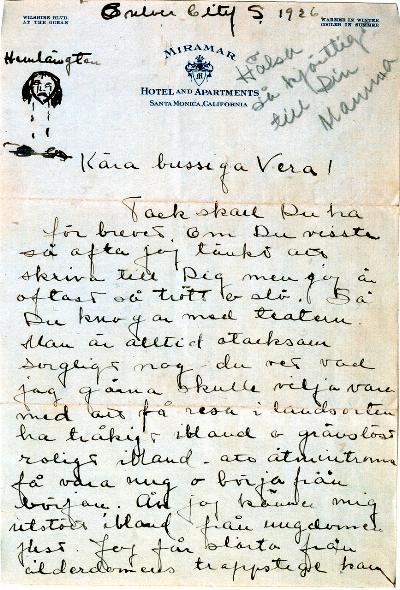 Culver City S 1926
WILSHIRE BLVD.
AT THE OCEAN
WARMER IN WINTER
COOLER IN SUMMER
Hälsa
så hjärtligt
till Din
Mamma
Hemlängtan
MIRAMAR
HOTEL AND APARTMENTS
SANTA MONICA, CALIFORNIA
Kära bussiga Vera!
Tack skall Du ha
för brevet. Om Du visste
så ofta jag tänkt att
skriva till Dig men jag är
oftast så trött o slö. Så
Du knogar med teatern.
Man är alltid otacksam
sorgligt nog - du vet vad
jag gärna skulle velja vara
med att få resa i landsorten
ha tråkigt ibland o gränslöst
roligt ibland - att åtminstone
få vara ung o börja från
början. Än jag känner mig
utstött ibland från ungdomen
just. Jag får starta från
ålderdomens trappsteg kan